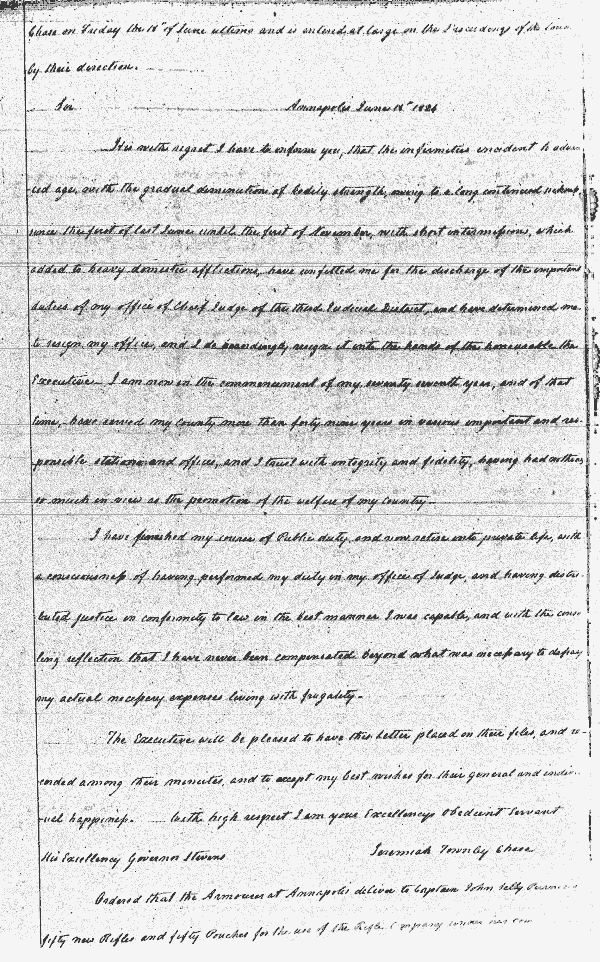 Chase on Friday the 18th of June ultimo and is entered at large on the Proceedings of the
by their direction.
Sir Annapolis June 18th 1824
It is with regret I have to inform you, that the infirmities incident to advan-
-ced age, with the gradual diminution of bodily strength, owing to a long continued
since the first of last June until the first of November, with short intermissions, which
added to heavy domestic afflictions, have unfitted me for the discharge of the important
duties of my office of Chief Judge of the third Judicial District, and have determined me
to resign my office, and I do accordingly, resign it into the hands of the honourable the
Executive. I am now in the commencement of my seventy seventh year, and of that
time, have served my country more than forty nine years in various important and res-
ponsible stations and offices, and I trust with integrity and fidelity, having had nothing
so much in view as the promotion of the welfare of my Country
I have finished my course of Public duty and now retire into private life, with
a consciousness of having performed my duty in my office of Judge, and having distri-
buted justice in conformity to law in the best manner I was capable, and with the conso
ling reflection that I have never been compensated beyond what was necessary to defray
my actual necessary expenses living with frugality.
The Executive will be pleased to have this letter placed on their files, and re-
corded among their minutes, and to accept my best wishes for their general and indivi-
-ual happiness. With high respect I am your Excellencys Obedient Servant
His Excellency Governor Stevens Jeremiah Townley Chase
Ordered that the Armourer at Annapolis deliver to Captain John Selby
fifty new Rifles and fifty Pouches for the use of the Rifle Company under his com